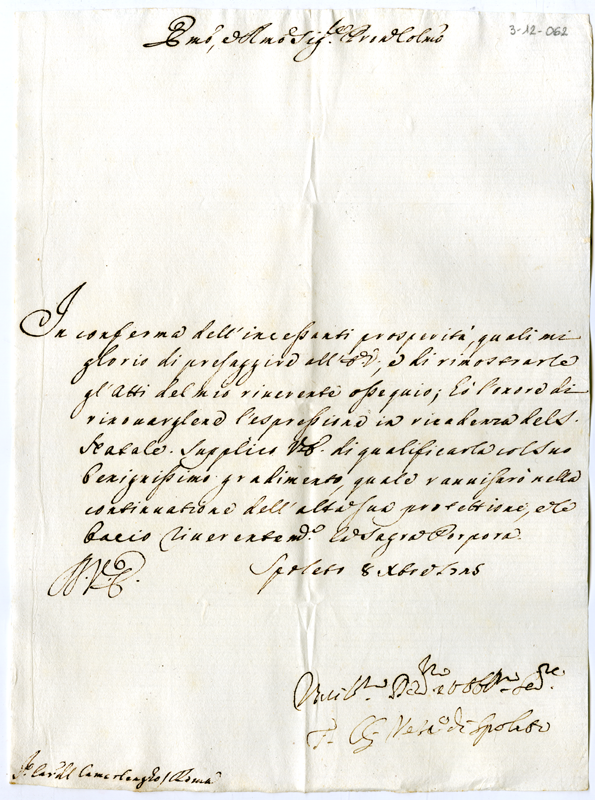 3-12-062
Em̃o, e Rmõ Sig.re Prõn Colmõ
In conferma dell'incessanti prosperità, quali mi
glorio di presaggire all'E.V. e di rimostrarle
gl'Atti del mio riverente ossequio; Hò l'onore di
rinovarglene l'espressione in ricadenza del S.
Natale. Supplico V.E. di qualificarla col suo
benignissimo gradimento, quale ravviserò nella
continuatione dell'alta sua protettione, e le
bacio riverentem.e la Sagra Porpora.
Spoleto 8 Xbre
di Spoleto
Camerlengho / Roma